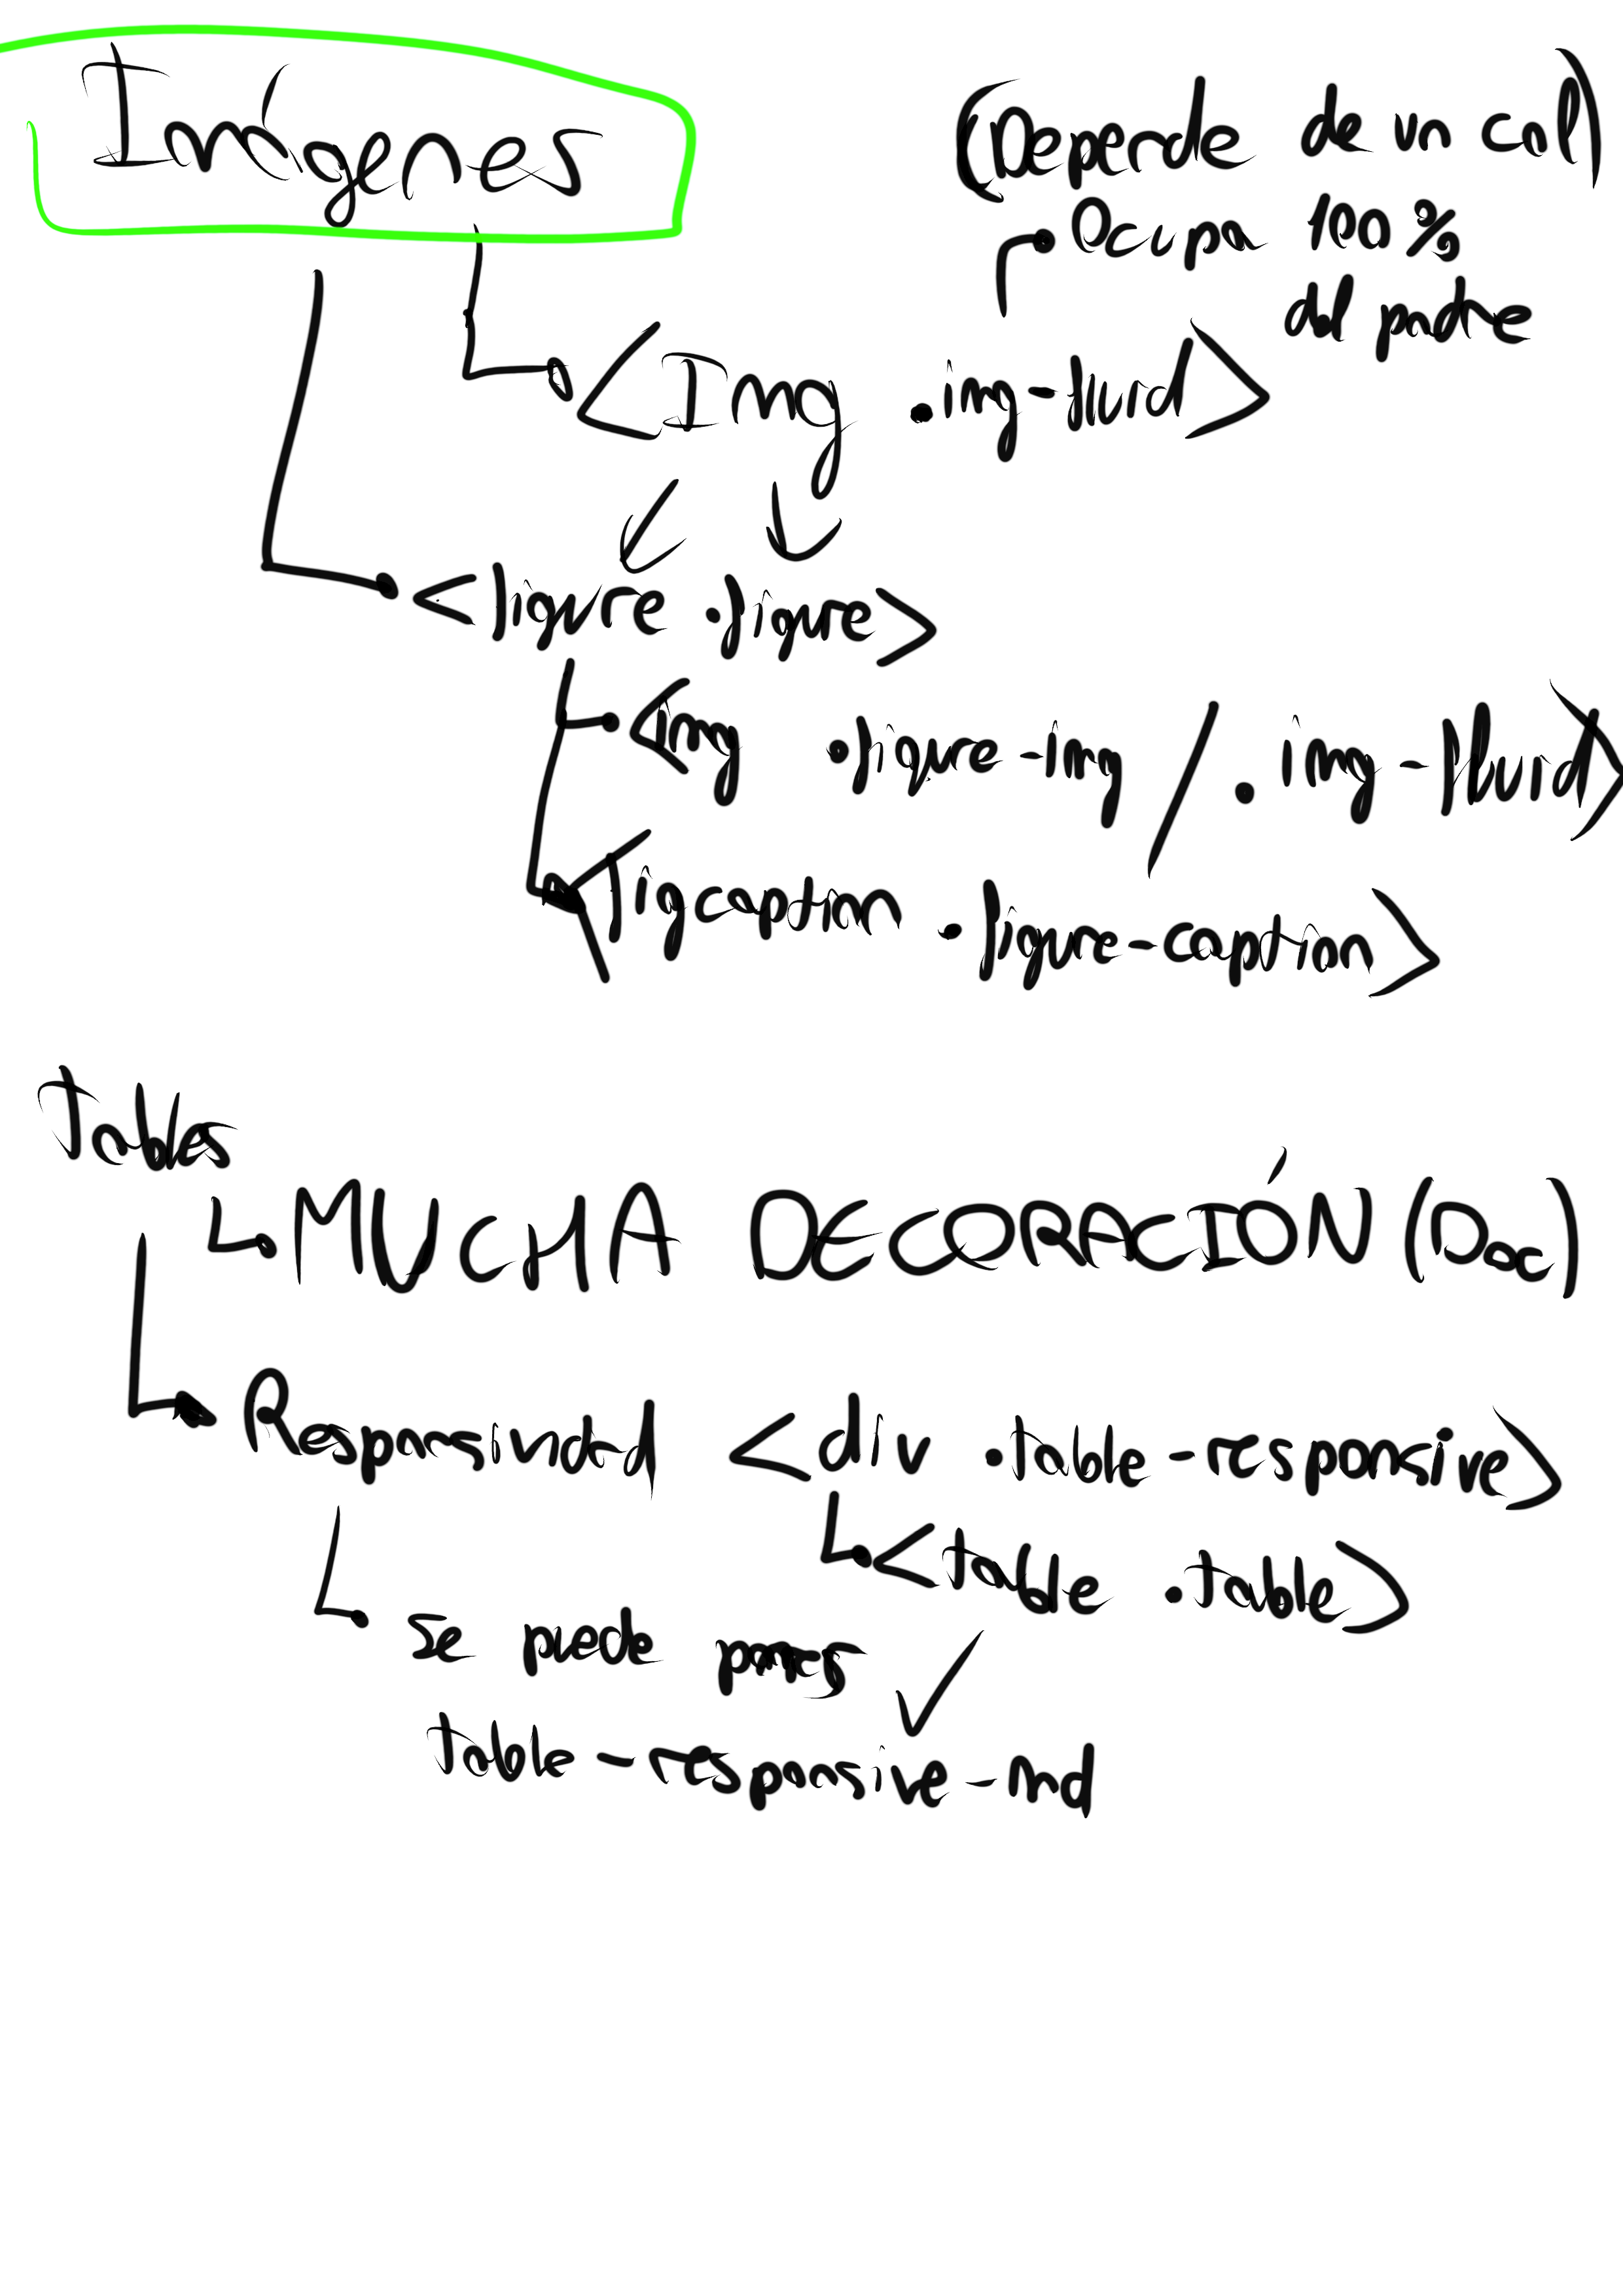 Imágenes
(Depende de un col)
Ocupa 100%
del padre
<Img .img-fluid>
<figure .figure>
<Img .figure-img / .img-fluid>
<Figcaption .figure-caption>
Tables
MUCHA DECORACIÓN (Doc)
Responsividad <div .table-responsive>
<table .table>
se puede
table-responsive-md